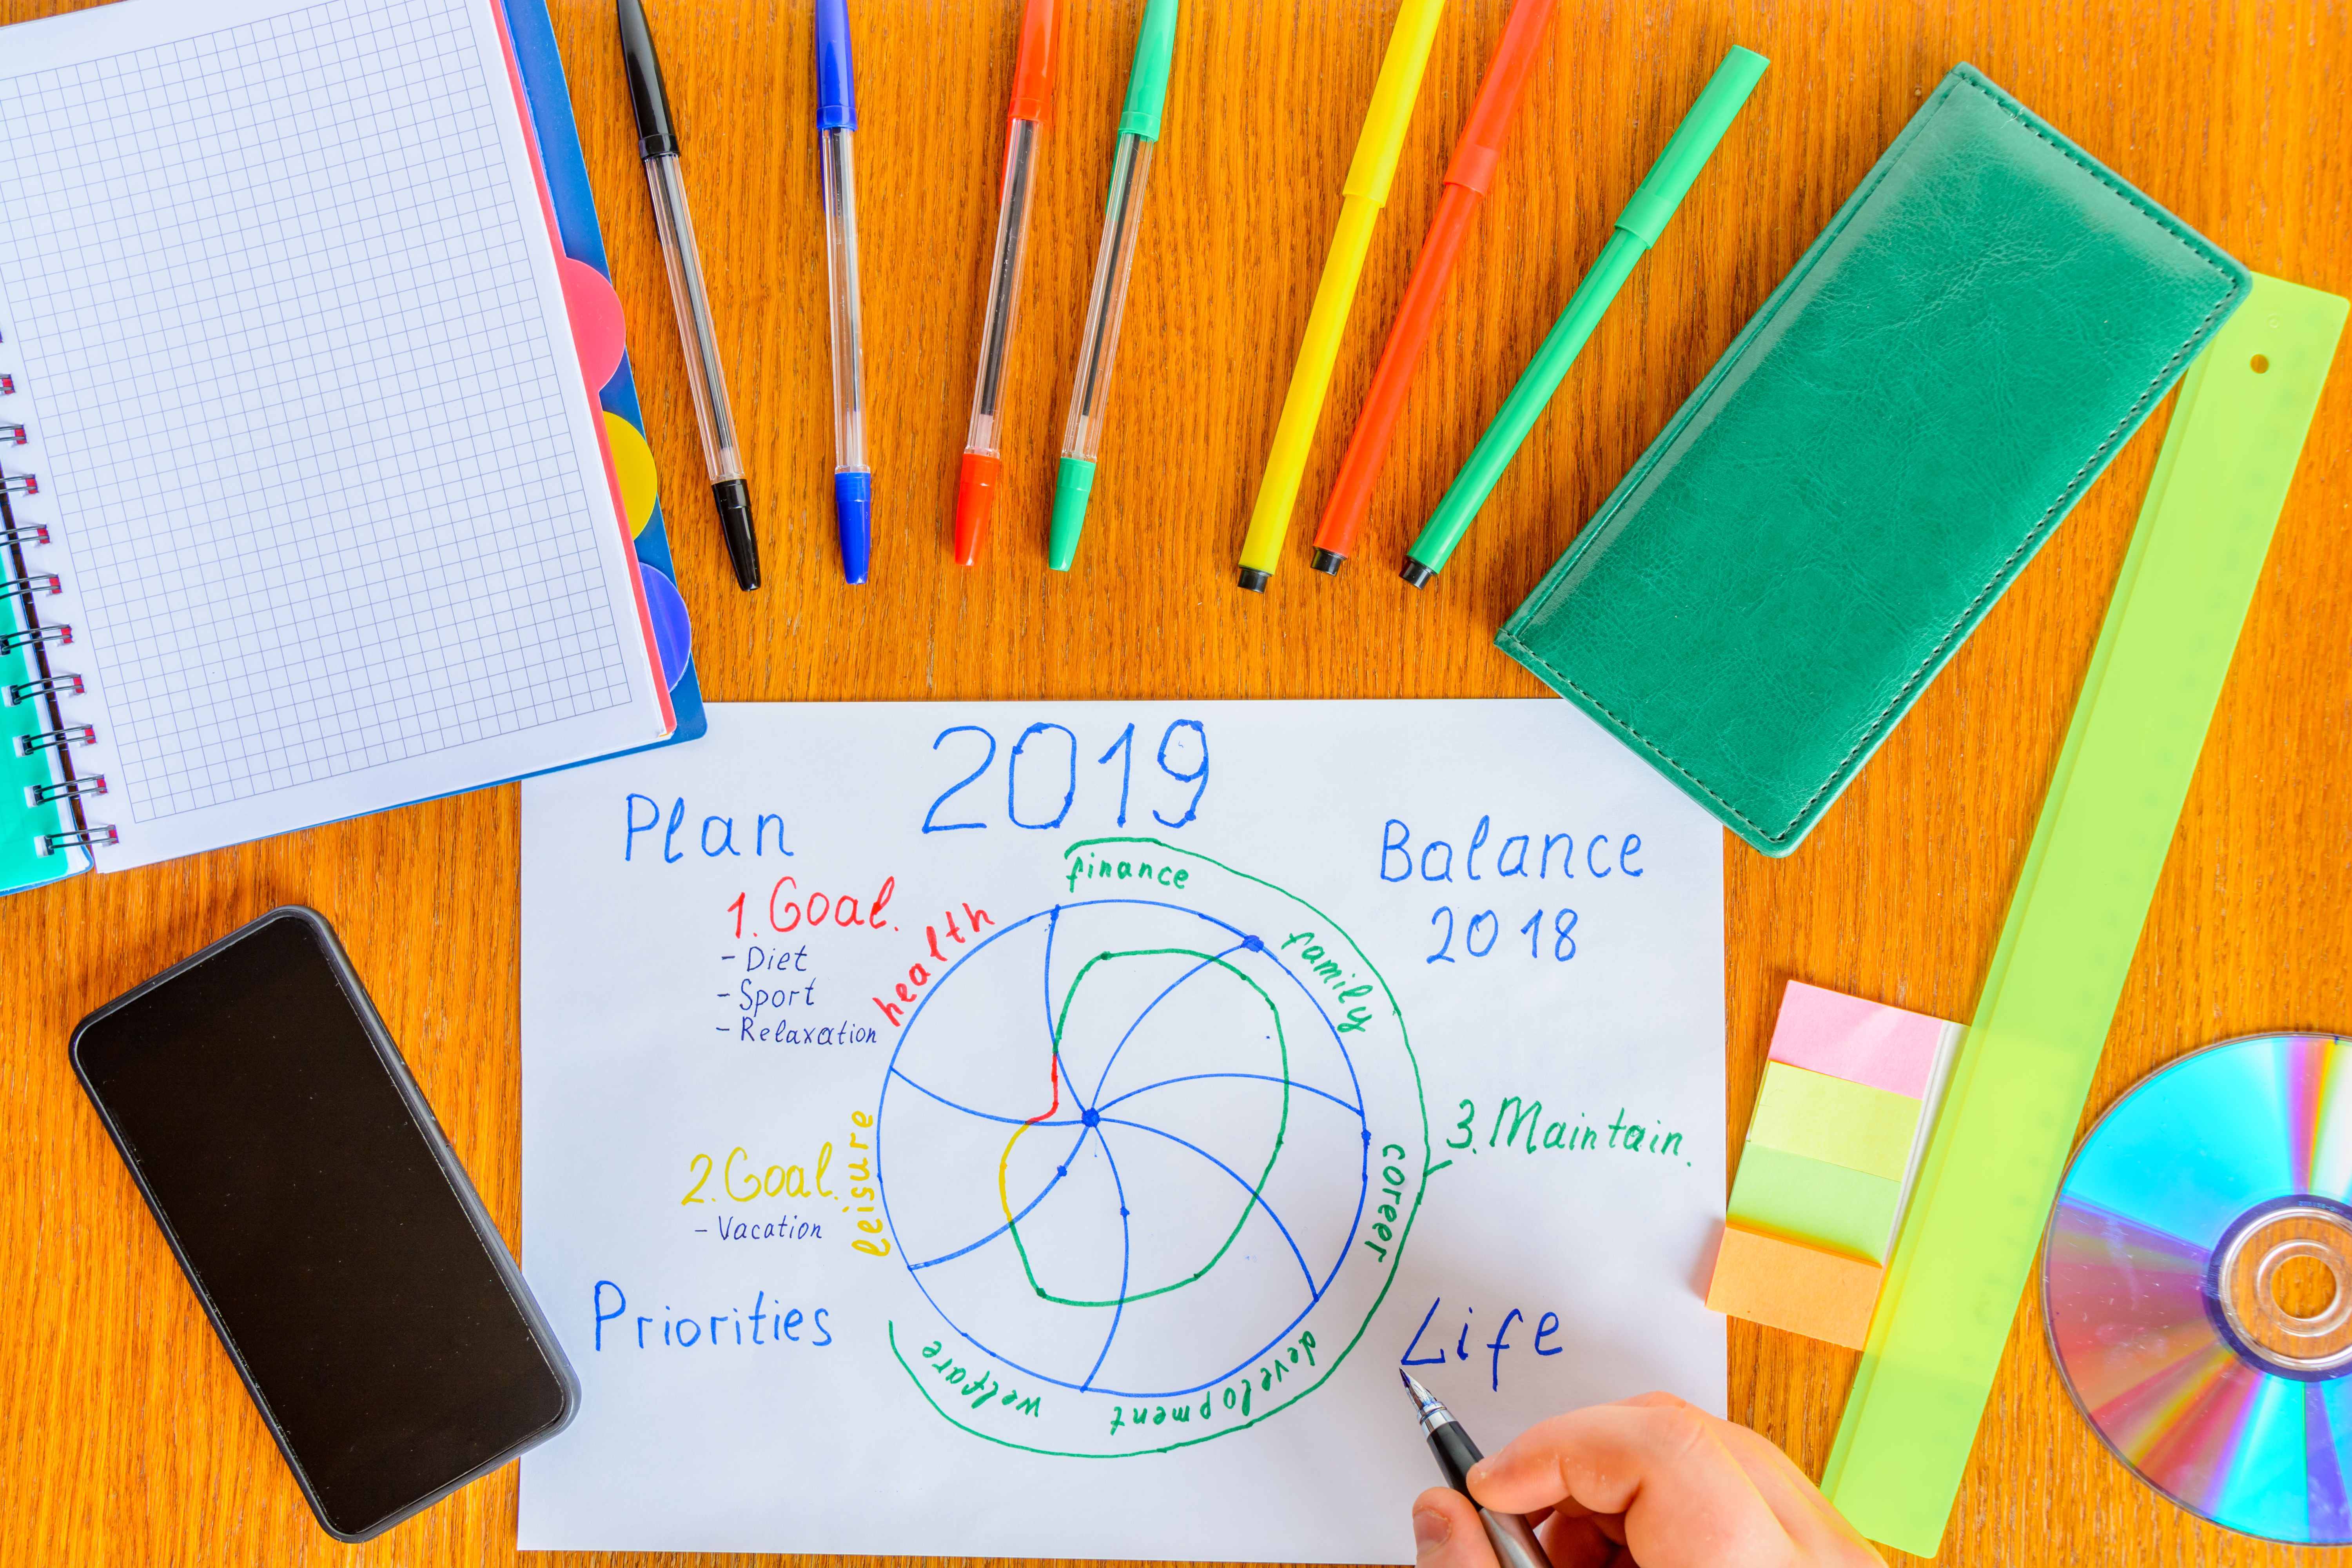 2019
Plan
Balance
2018
1. Goal.
- Diet
- Sport
- Relaxation
health
finance
family
career
3. Maintain.
2. Goal.
- Vacation
leisure
welfare
development
Priorities
Life